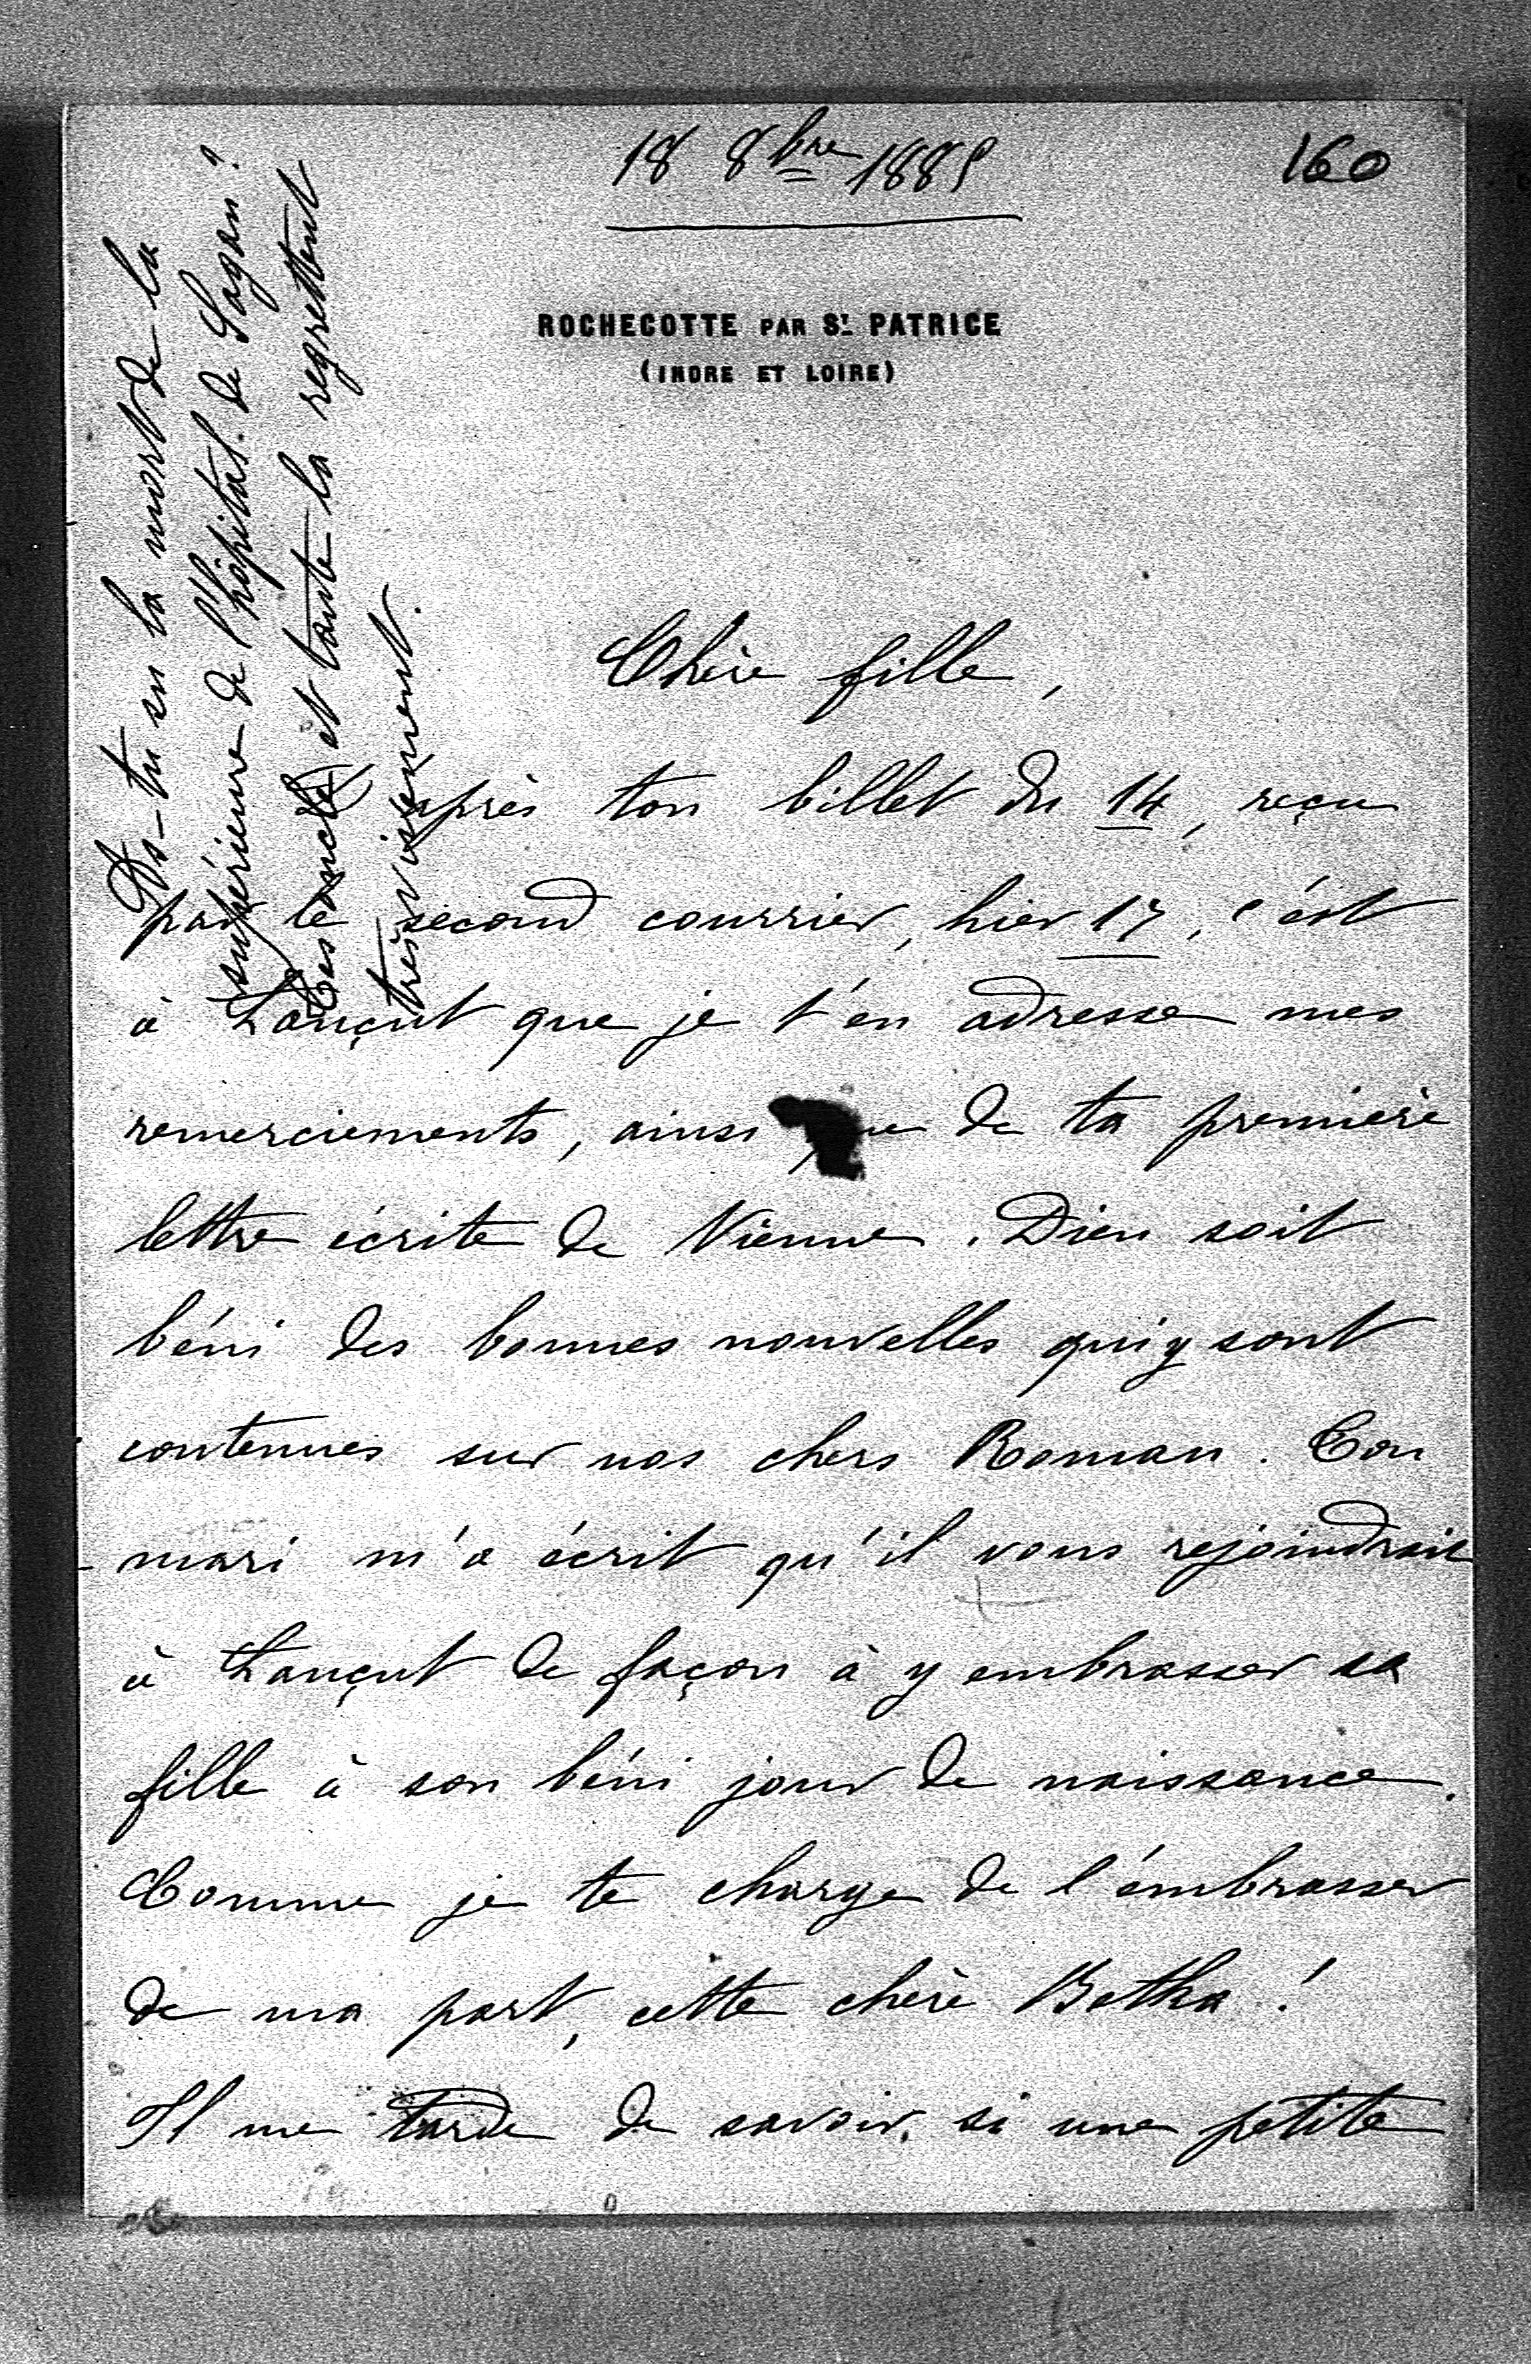 18 8bre 1885
160
ROCHECOTTE PAR ST PATRICE
(INDRE ET LOIRE)
Chère fille,
après ton billet du 14, reçu
par le second courrier, hier 17, c'est
à Lançut que je t'en adresse mes
remerciements, ainsi que de ta première
lettre écrite de Vienne. Dieu soit
béni des bonnes nouvelles qui y sont
contenues sur nos chers Roman. Ton
mari m'a écrit qu'il vous rejoindrait
à Lançut de façon à y embrasser sa
fille à son béni jour de naissance.
Comme je te charge de l'embrasser
de ma part, cette chère Betka!
Il me tarde de savoir, si une petite
As-tu su la mort de la
supérieure de l'hôpital de Sagan?
Tes oncle et tante la regrettent
très vivement.